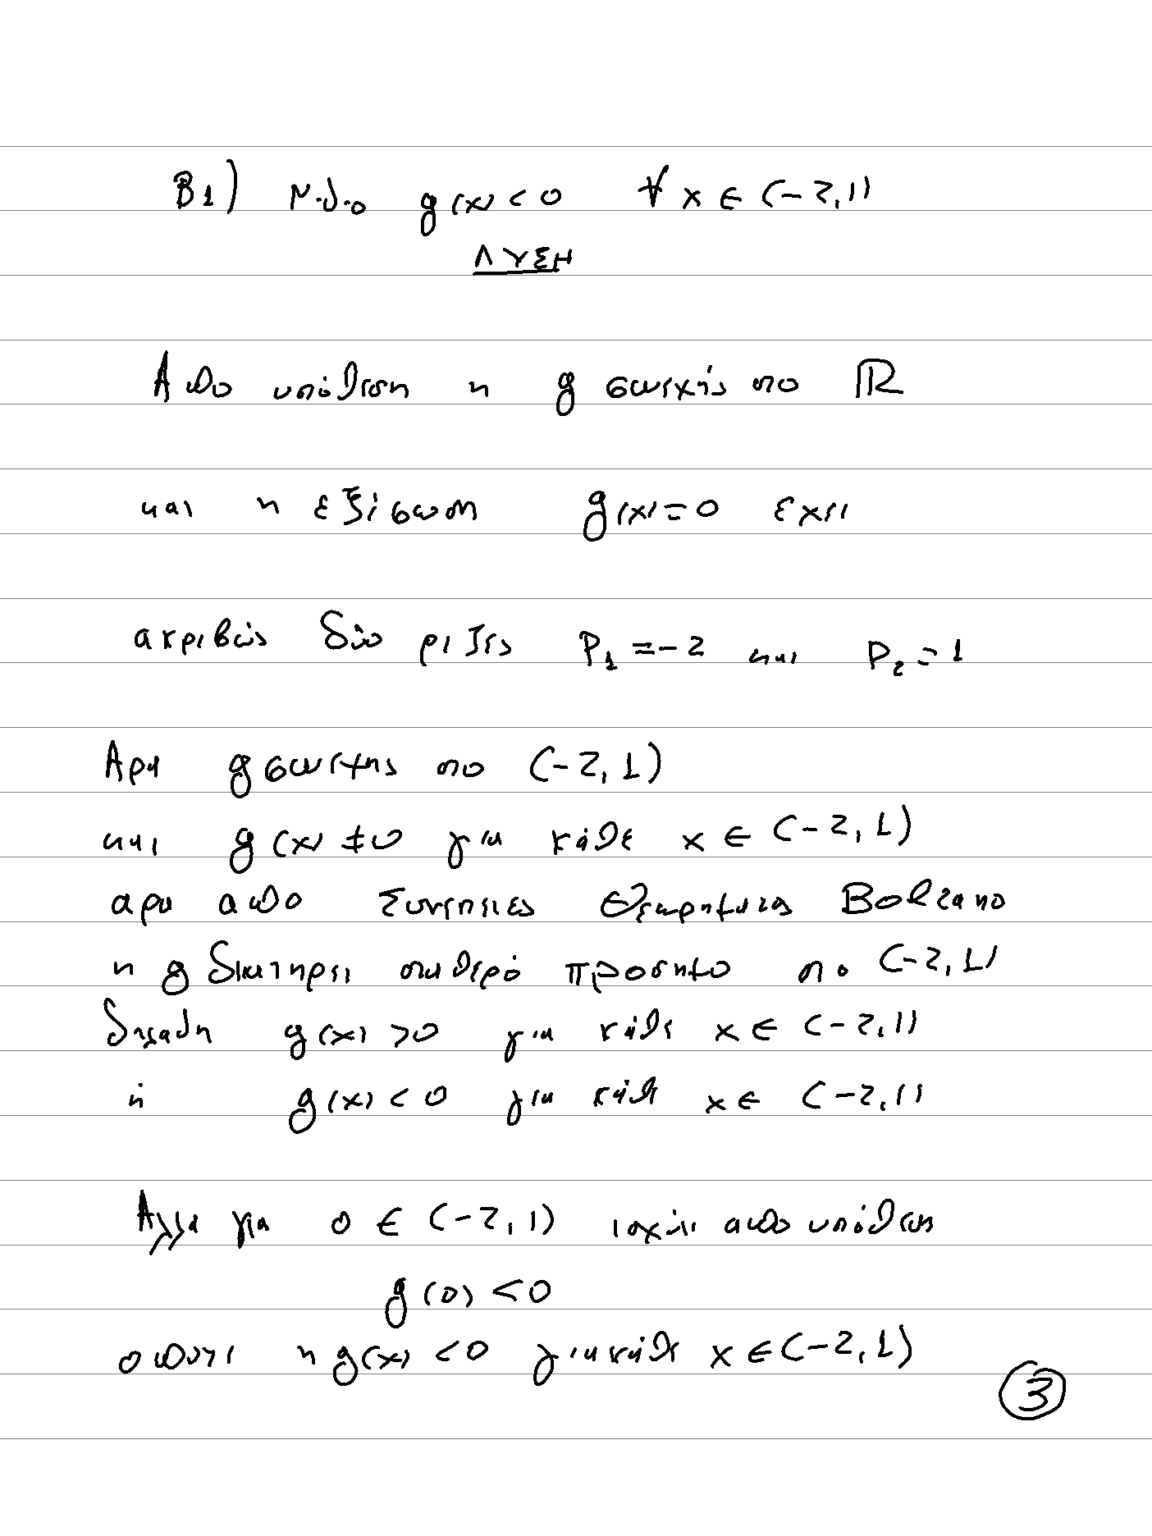 Β1) Ν.δ.ο g(x) < 0 ∀ x ∈ (-2,1)
ΛΥΣΗ
Απο υπόθεση η g συνεχής στο ℝ
και η εξίσωση g(x) = 0 εχει
ακριβώς δύο ριζες ρ₁ = -2 και ρ₂ = 1
Αρα g συνεχης στο (-2, 1)
και g(x) ≠ 0 για κάθε x ∈ (-2, 1)
αρα απο Συνεπειες Θεωρηματος Bolzano
η g διατηρει σταθερό προσημο στο (-2, 1)
δηλαδη g(x) > 0 για κάθε x ∈ (-2, 1)
ή g(x) < 0 για κάθε x ∈ (-2, 1)
Αλλα για 0 ∈ (-2, 1) ισχύει απο υπόθεση
g(0) < 0
οποτε η g(x) < 0 για κάθε x ∈ (-2, 1)
3